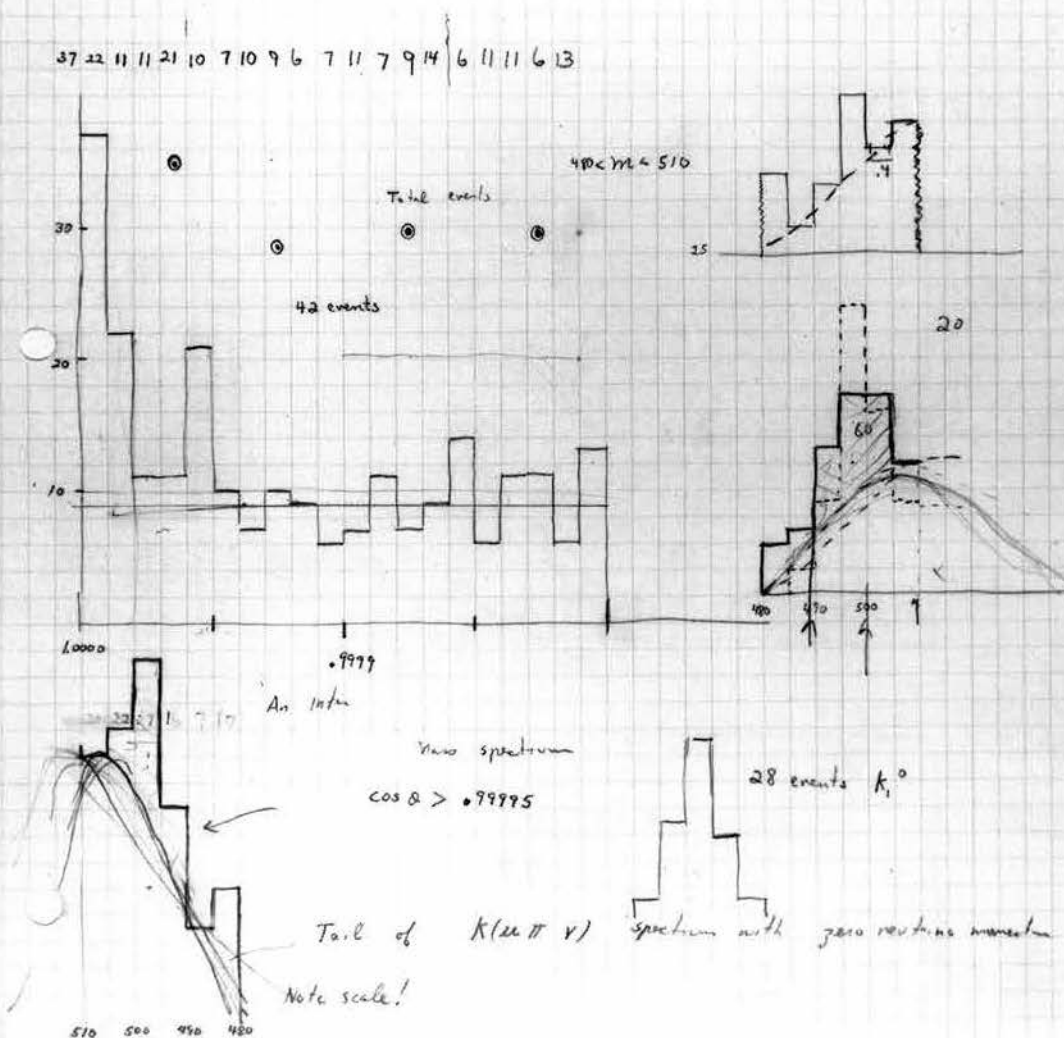 37 22 11 11 21 10 7 10 9 6 7 11 7 9 14 6 11 11 6 13
480 < m < 510
.4
Total events
30
25
42 events
20
20
60
10
480 490 500
1.0000
.9999
An
22 27
mass spectrum
28 events K₁⁰
cos θ > .99995
Tail of K(μ π ν) spectrum with zero neutrino momentum
Note scale!
510 500 490 480